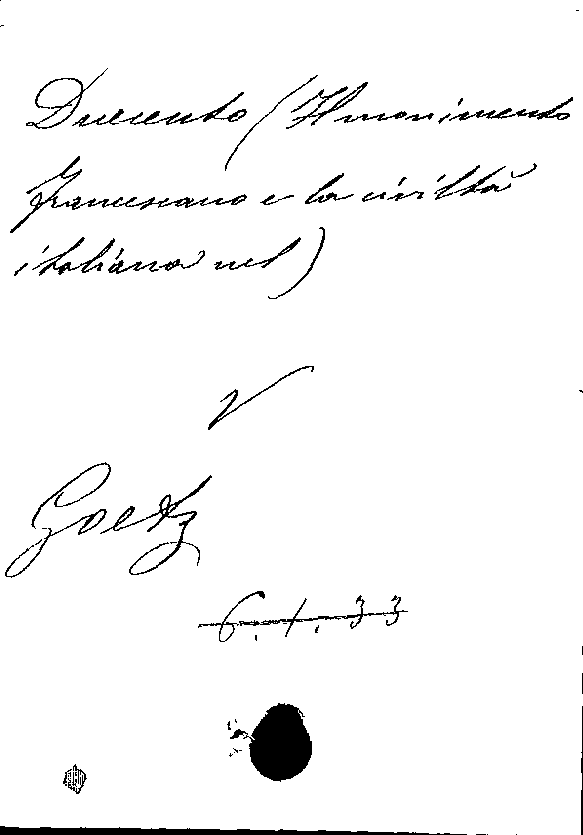 Duecento (Il movimento
francescano e la civiltà
italiana nel)
V
Goetz
6.1.33